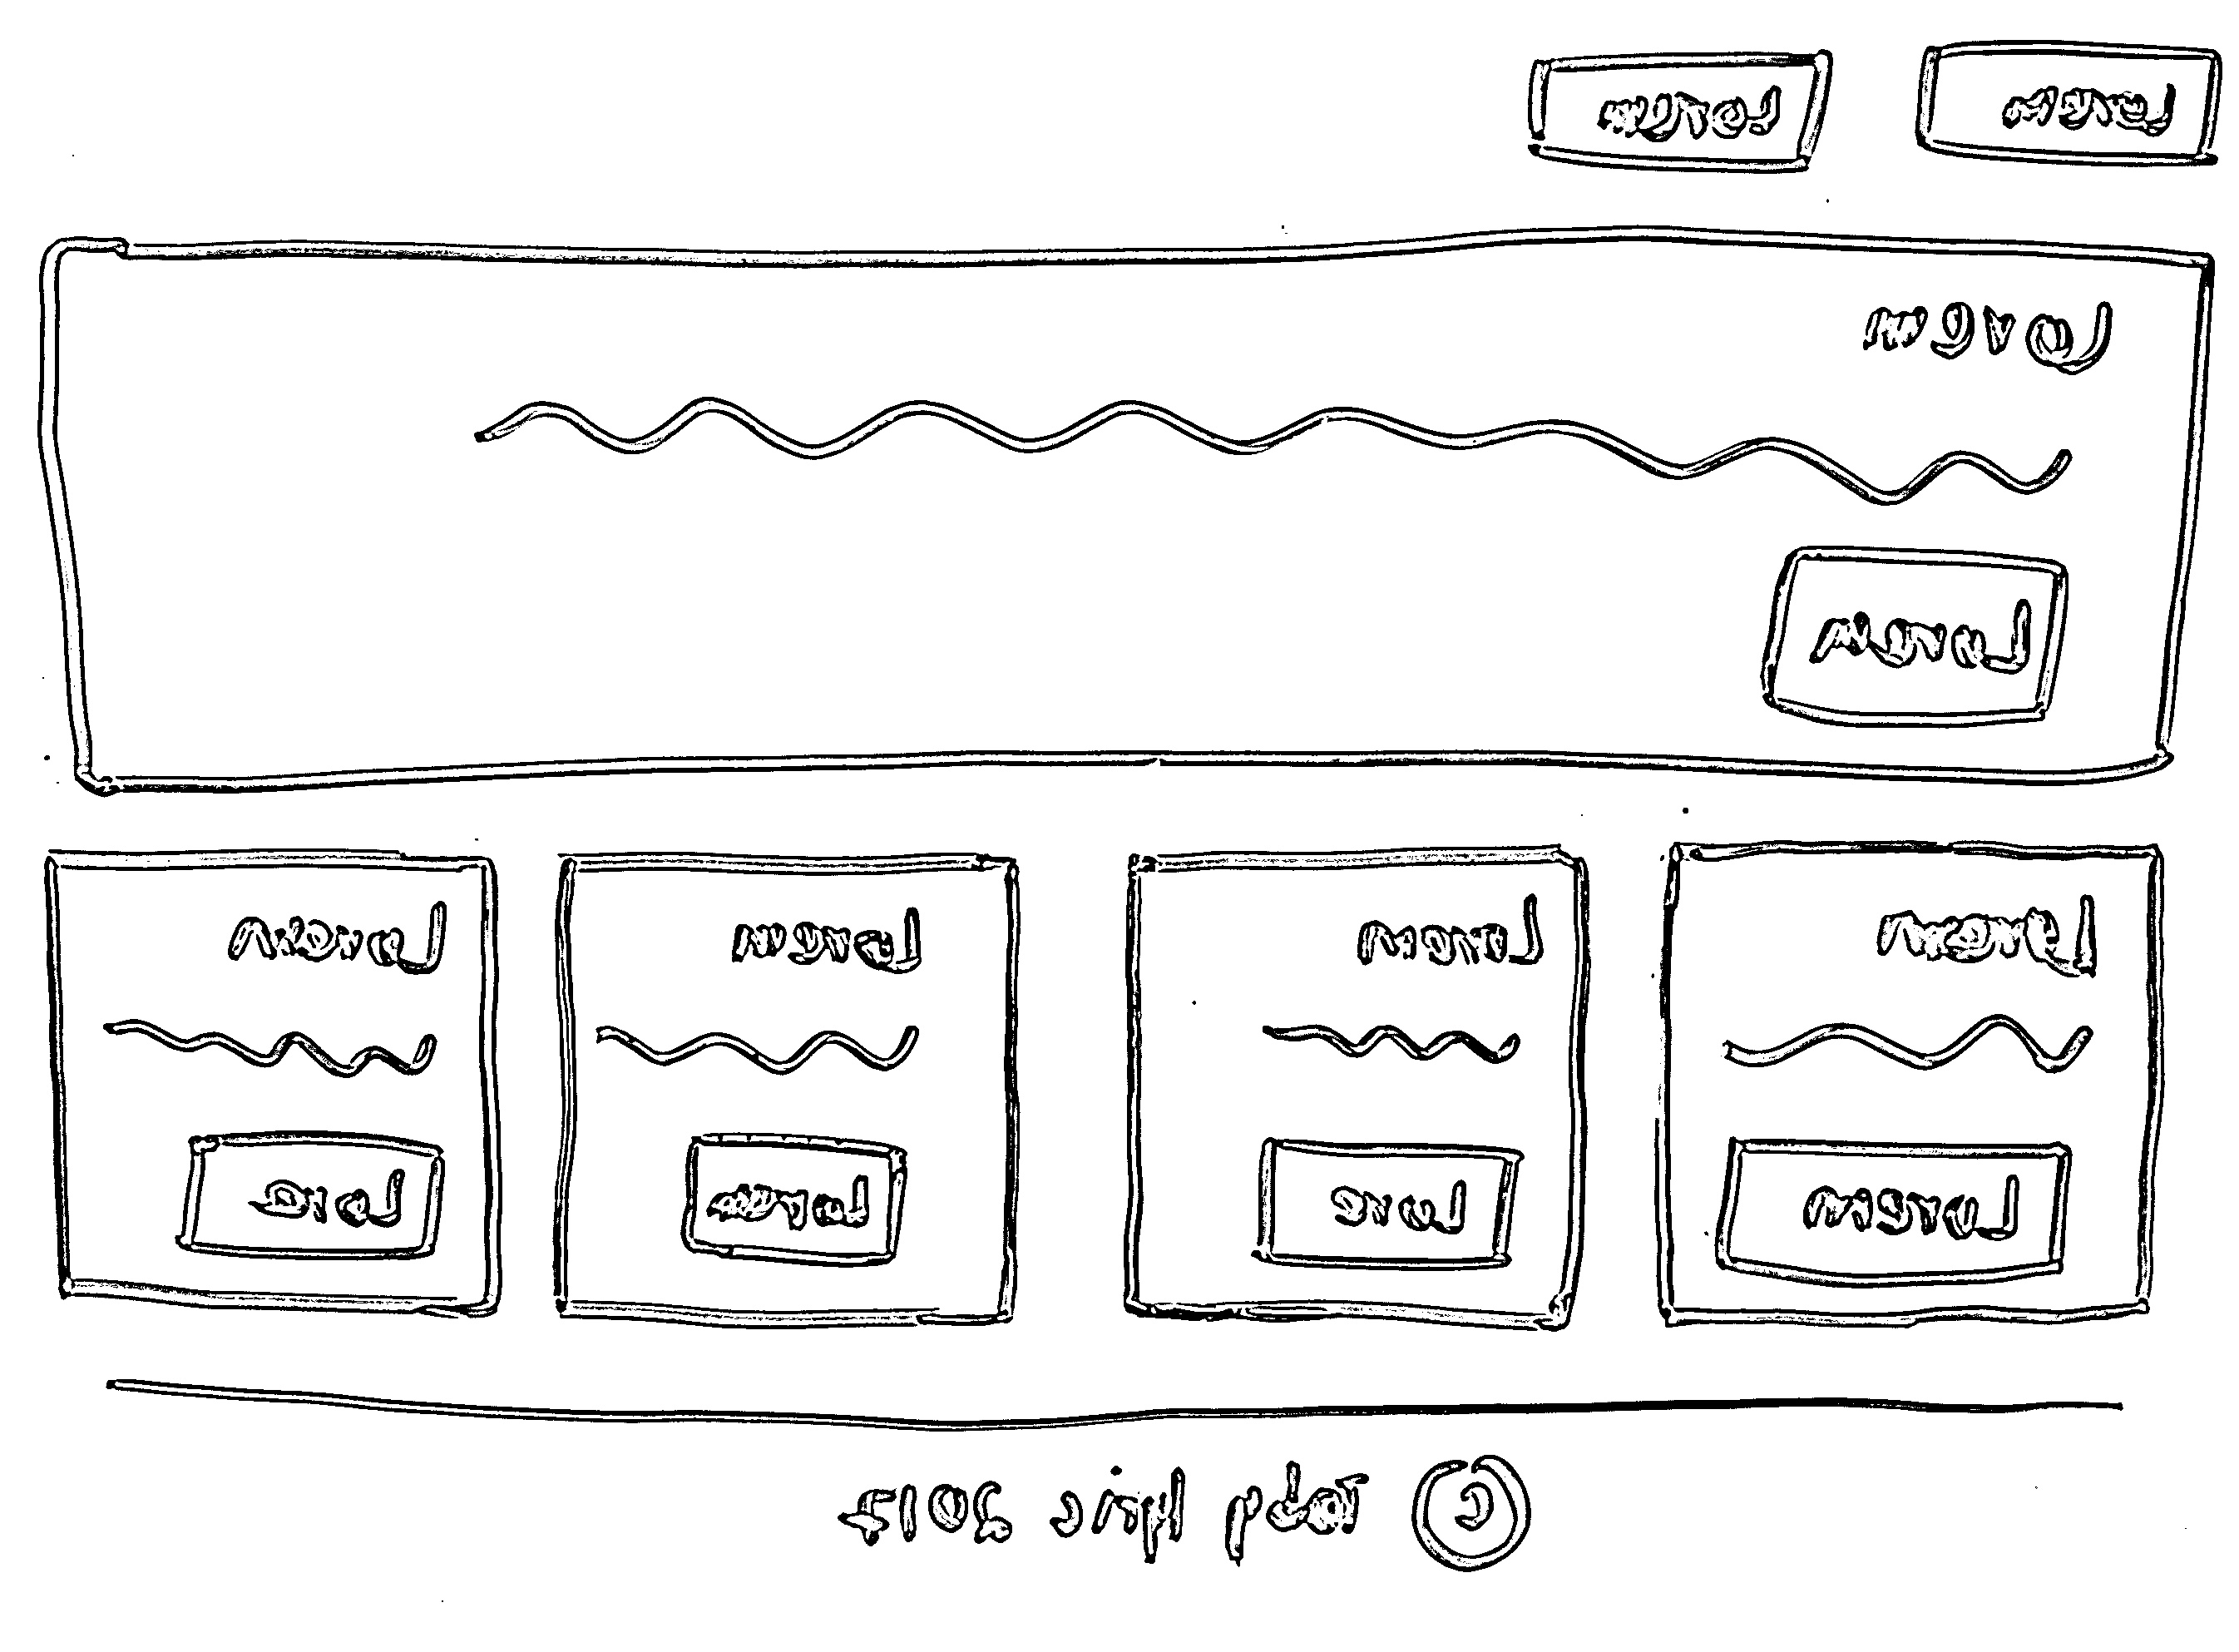 Lorem Lorem
Lorem
Lorem
Lorem Lorem Lorem Lorem
Lorem Lore Lorem Lore
©